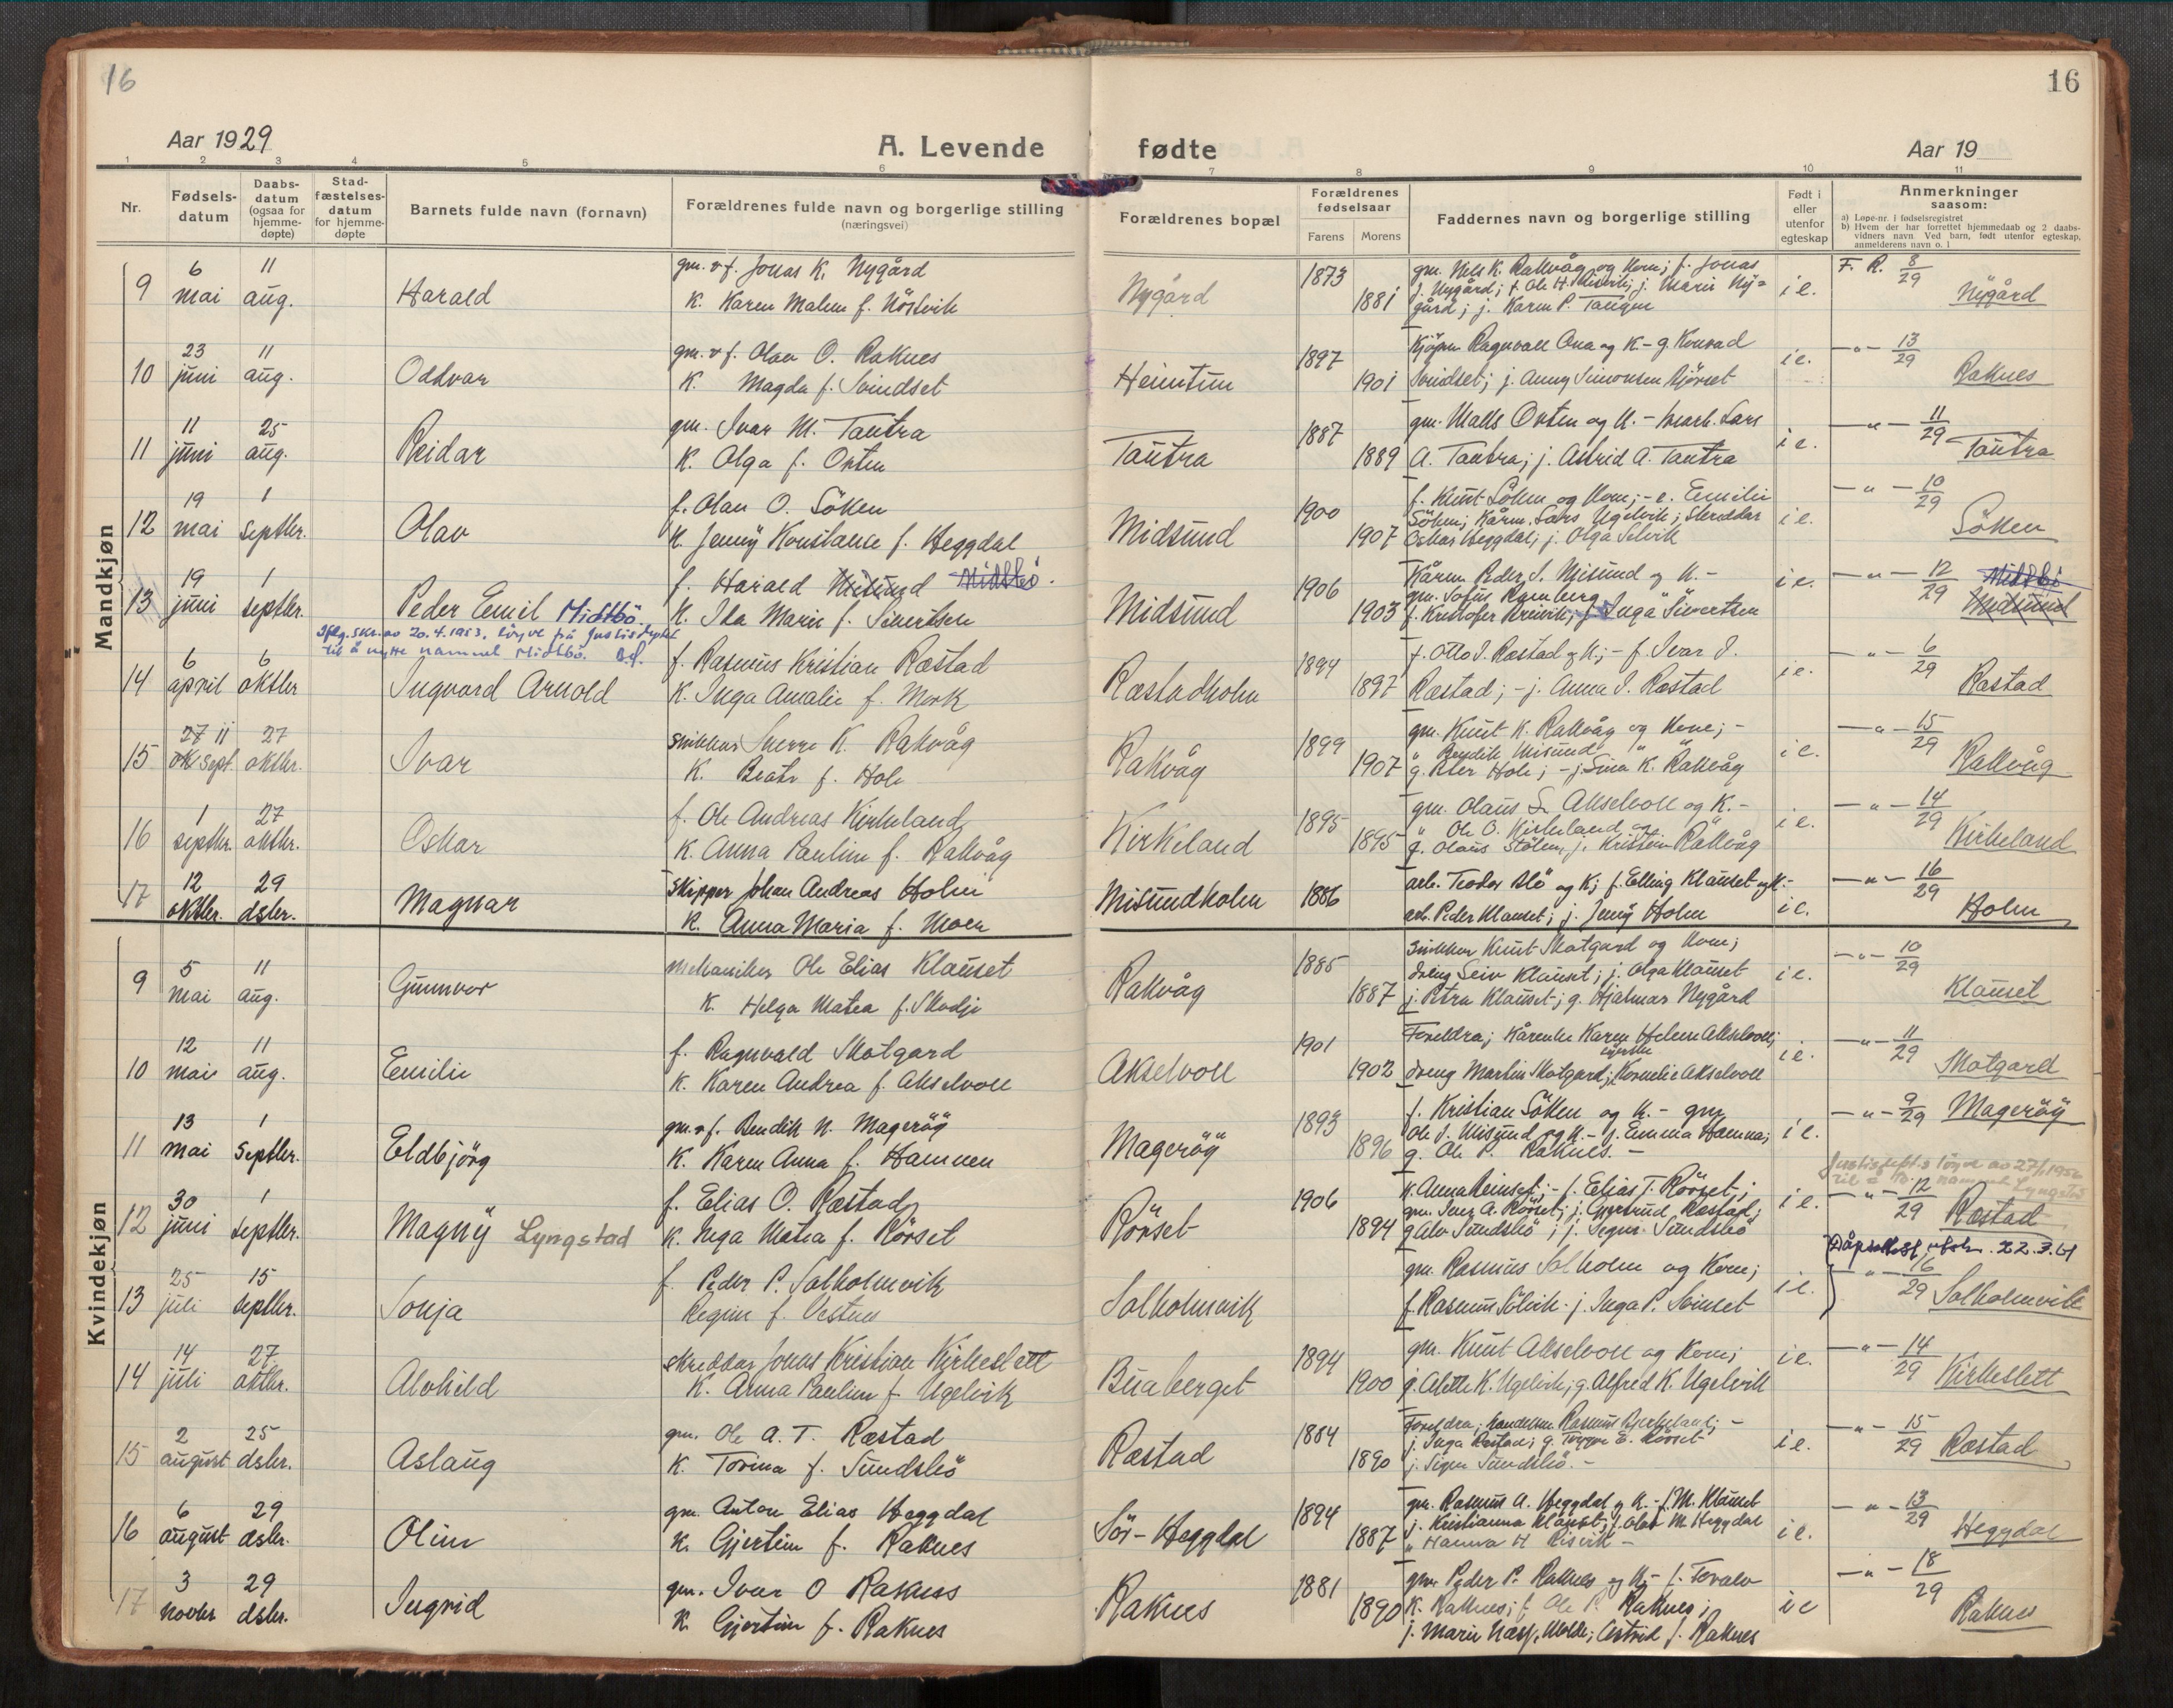 16
16
Aar 1929
A. Levende fødte
Aar 19
1 2 3 4 5 6 7 8 9 10 11
Nr.
Fødsels-datum
Daabs-datum (ogsaa for hjemme-døpte)
Stad-fæstelses-datum for hjemme-døpte
Barnets fulde navn (fornavn)
Forældrenes fulde navn og borgerlige stilling (næringsvei)
Forældrenes bopæl
Forældrenes fødselsaar
Farens Morens
Faddernes navn og borgerlige stilling
Født i eller utenfor egteskap
Anmerkninger saasom:
a) Løpe-nr. i fødselsregistret
b) Hvem der har forrettet hjemmedaab og 2 daabs-vidners navn Ved barn, født utenfor egteskap, anmelderens navn o. l
Mandkjøn
9 6 mai 11 aug. Harald
gm. & f. Jonas K. Nygård
K. Karen Malene f. Nöstvik
Nygård 1873 1881
gm. Nils K. Rakvåg og Kone; f. Jonas
J. Nygård; f. Ole H. j. Marie Ny=
gård; j. Karen P. Tangen
i e. F. R. 8/29 Nygård
10 23 juni 11 aug. Oddvar
gm. & f. Olav O. Raknes
K. Magda f. Svindset
Heimtun 1897 1901
Kjöpm. Ragnvald Ona og K. - g. Konrad
Svindset; j. Anny Simonsen Björset
i e. -"- 13/29 Raknes
11 11 juni 25 aug. Reidar
gm. Ivar M. Tautra
K. Olga f. Orten
Tautra 1887 1889
gm. Mats Orten og K. - Lars
A. Tautra; j. Astrid A. Tautra
i e. -"- 11/29 Tautra
12 19 mai 1 septbr. Olav
f. Olav O. Söken
K. Jenny Konstanse f. Heggdal
Midsund 1900 1907
f. Knut Söken og Kone; - e. Emilie
Söken; Kårm. Lars Ugelvik; Skreddar
Oskar Heggdal; j. Olga Selvik
i e. -"- 10/29 Söken
13 19 juni 1 septbr. Peder Emil Midtbö.
f. Harald Misund Midtbö.
K. Ida Marie f. Sivertsen
Midsund 1906 1903
Kårm. Peder J. Misund og K. -
gm. Sofus Ramberg
f. Kristofer Breivik; j. Inga Sivertsen
i e. -"- 12/29 Midtbö Midsund
Iflg. skr. av 20.4.1953. löyve frå Justisdeptet
til å nytte namnet Midtbö.
14 6 april 6 oktbr Ingvard Arnold
f. Rasmus Kristian Ræstad
K. Inga Amalie f. Mork
Ræstadholm 1894 1897
f. Otto J. Ræstad og K; - f. Ivar J.
Ræstad; - j. Anna J. Ræstad
i e. -"- 6/29 Ræstad
15 27 11 ok sept. 27 oktbr. Ivar
Snikkar Sverre K. Rakvåg
K. Beate f. Hole
Rakvåg 1899 1907
gm. Knut K. Rakvåg og Kone; -
" Bendik Misund " "
g. Peter Hole; - j. Sina K. Rakvåg
i e. -"- 15/29 Rakvåg
16 1 septbr. 27 oktbr. Oskar
f. Ole Andreas Kirkeland
K. Anna Pauline f. Rakvåg
Kirkeland 1895 1895
gm. Olaus S. Akselvoll og K. -
" Ole O. Kirkeland og "
g. Olaus Stölen, j. Kristine Rakvåg
i e. -"- 14/29 Kirkeland
17 12 oktbr. 29 dsbr. Magnar
Skipper Johan Andreas Holm
K. Anna Maria f. Moen
Misundholm 1886
arb. Teodor Blö og K; f. Elling Klauset og K. -
arb. Peder Klauset; j. Jenny Holm
i e. -"- 16/29 Holm
Kvindekjøn
9 5 mai 11 aug. Gunnvor
mekaniker Ole Elias Klauset
K. Helga Matea f. Skodje
Rakvåg 1885 1887
Snikkar Knut Skotgard og Kone;
dreng Sein Klauset; j. Olga Klauset
j. Petra Klauset; g. Hjalmar Nygård
i e. -"- 10/29 Klauset
10 12 mai 11 aug. Emilie
f. Ragnvald Skotgard
K. Karen Andrea f. Akselvoll
Akselvoll 1901 1902
Foreldra; Kårenke Karen Helene Akselvoll;
dreng Martin Skotgard; Kornelie Akselvoll
i e. -"- 11/29 Skotgard
11 13 mai 1 Septbr. Eldbjörg
gm. & f. Bendik N. Mageröy
K. Karen Anna f. Hamnen
Mageröy 1893 1896
f. Kristian Söken og K. - gm.
Ole J. Misund og K. - j. Emma Hamna;
g. Ole P. Raknes. -
i e. -"- 9/29 Magerøy
12 30 juni 1 septbr. Magny Lyngstad
f. Elias O. Ræstad
K. Inga Matea f. Rörset
Rörset 1906 1894
K. Anna Reinset; - f. Elias T. Rörset;
gm. Iver A. Rörset; j. Gjertrud Ræstad;
g. Alv Sundsbö; j. Signe Sundsbö
i e. -"- 12/29 Ræstad
Justisdept.s löyve av 27/1.1950
til å namnet Lyngstad
13 25 juli 15 septbr. Sonja
f. Peder P. Salholmvik
Regine f. Orstnes
Solholmvik
gm. Rasmus Solholm og Kone;
f. Rasmus Sölvik. j. Inga P. Svinset
i e. Dåpsattest utskr. 22.3.61
-"- 16/29 Solholmvik
14 14 juli 27 oktbr. Alvhild
skreddar Jonas Kristian Kirkeslett
K. Anna Pauline f. Ugelvik
Buaberget 1894 1900
gm. Knut Akselvoll og Kone;
j. Alette K. Ugelvik; g. Alfred K. Ugelvik
i e. -"- 14/29 Kirkeslett
15 2 august 25 dsbr. Aslaug
gm. Ole A. T. Ræstad
K. Torina f. Sundsbö
Ræstad 1884 1890
Foreldra; handelsm. Rasmus Bjerkeland; -
j. Inga Ræstad; g. Trygve E. Rörset
j. Signe Sundsbö. -
i e. -"- 15/29 Ræstad
16 6 august 29 dsbr. Oline
gm. Anton Elias Heggdal
K. Gjertine f. Raknes
Sör-Heggdal 1894 1887
gm. Rasmus A. Heggdal og K. - f. M. Klauset
j. Kristianna Klauset; f. Olav M. Heggdal
" Hanna H. Risvik -
i e. -"- 13/29 Heggdal
17 3 novbr 29 dsbr. Ingrid
gm. Ivar O Raknes
K. Gjertine f. Raknes
Raknes 1881 1890
gm. Peder P. Raknes og K; - f. Toralv
K. Raknes; f. Ole P. Raknes;
j. Marie Næss, Molde; Astrid J. Raknes
i e -"- 18/29 Raknes